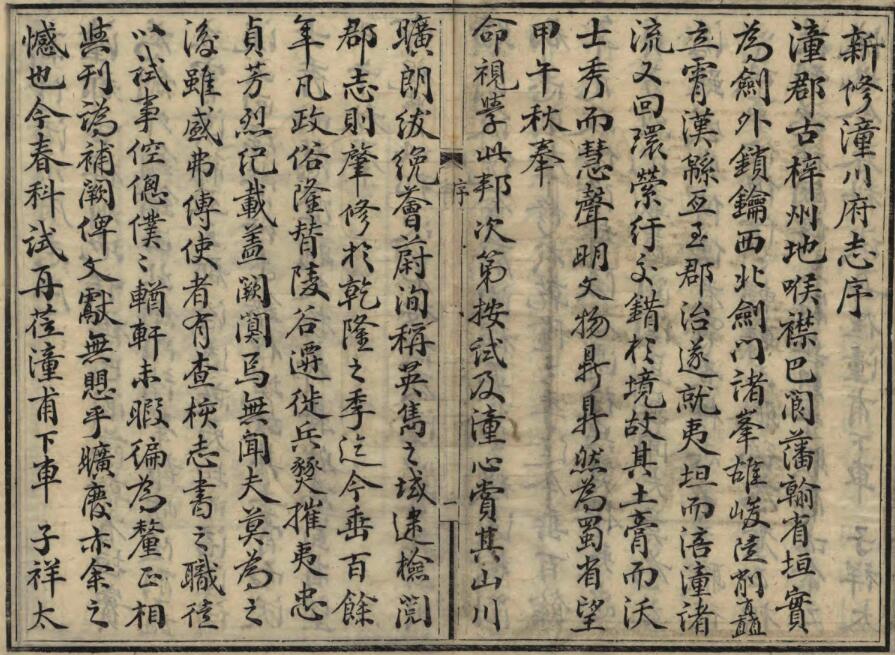 新修潼川府志序
潼郡古梓州地喉襟巴閬藩翰省垣實
為劍外鎖鑰西北劍門諸峯雄峻陡削矗
立霄漢緜亙至郡治遂就夷坦而涪潼諸
流又回環縈紆交錯於境故其土膏而沃
士秀而慧聲明文物鼎鼎然為蜀省望
甲午秋奉
命視學此邦次第按試及潼心賞其山川
序
一
曠朗紱絻薈蔚洵稱英雋之域逮檢閱
郡志則肇修於乾隆之季迄今垂百餘
年凡政俗隆替陵谷遷徙兵燹摧夷忠
貞芳烈紀載蓋闕闃焉無聞夫莫為之
後雖盛弗傳使者有查核志書之職徒
以試事倥傯僕〻輶軒未暇徧為釐正相
與刊譌補闕俾文獻無愳乎曠廢亦余之
憾也今春科試再莅潼甫下車子祥太